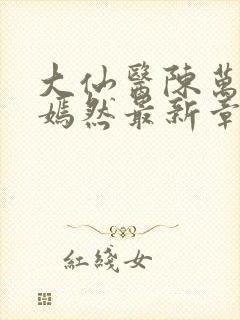 大仙醫陳萬
嫣然最新章
紅綫女